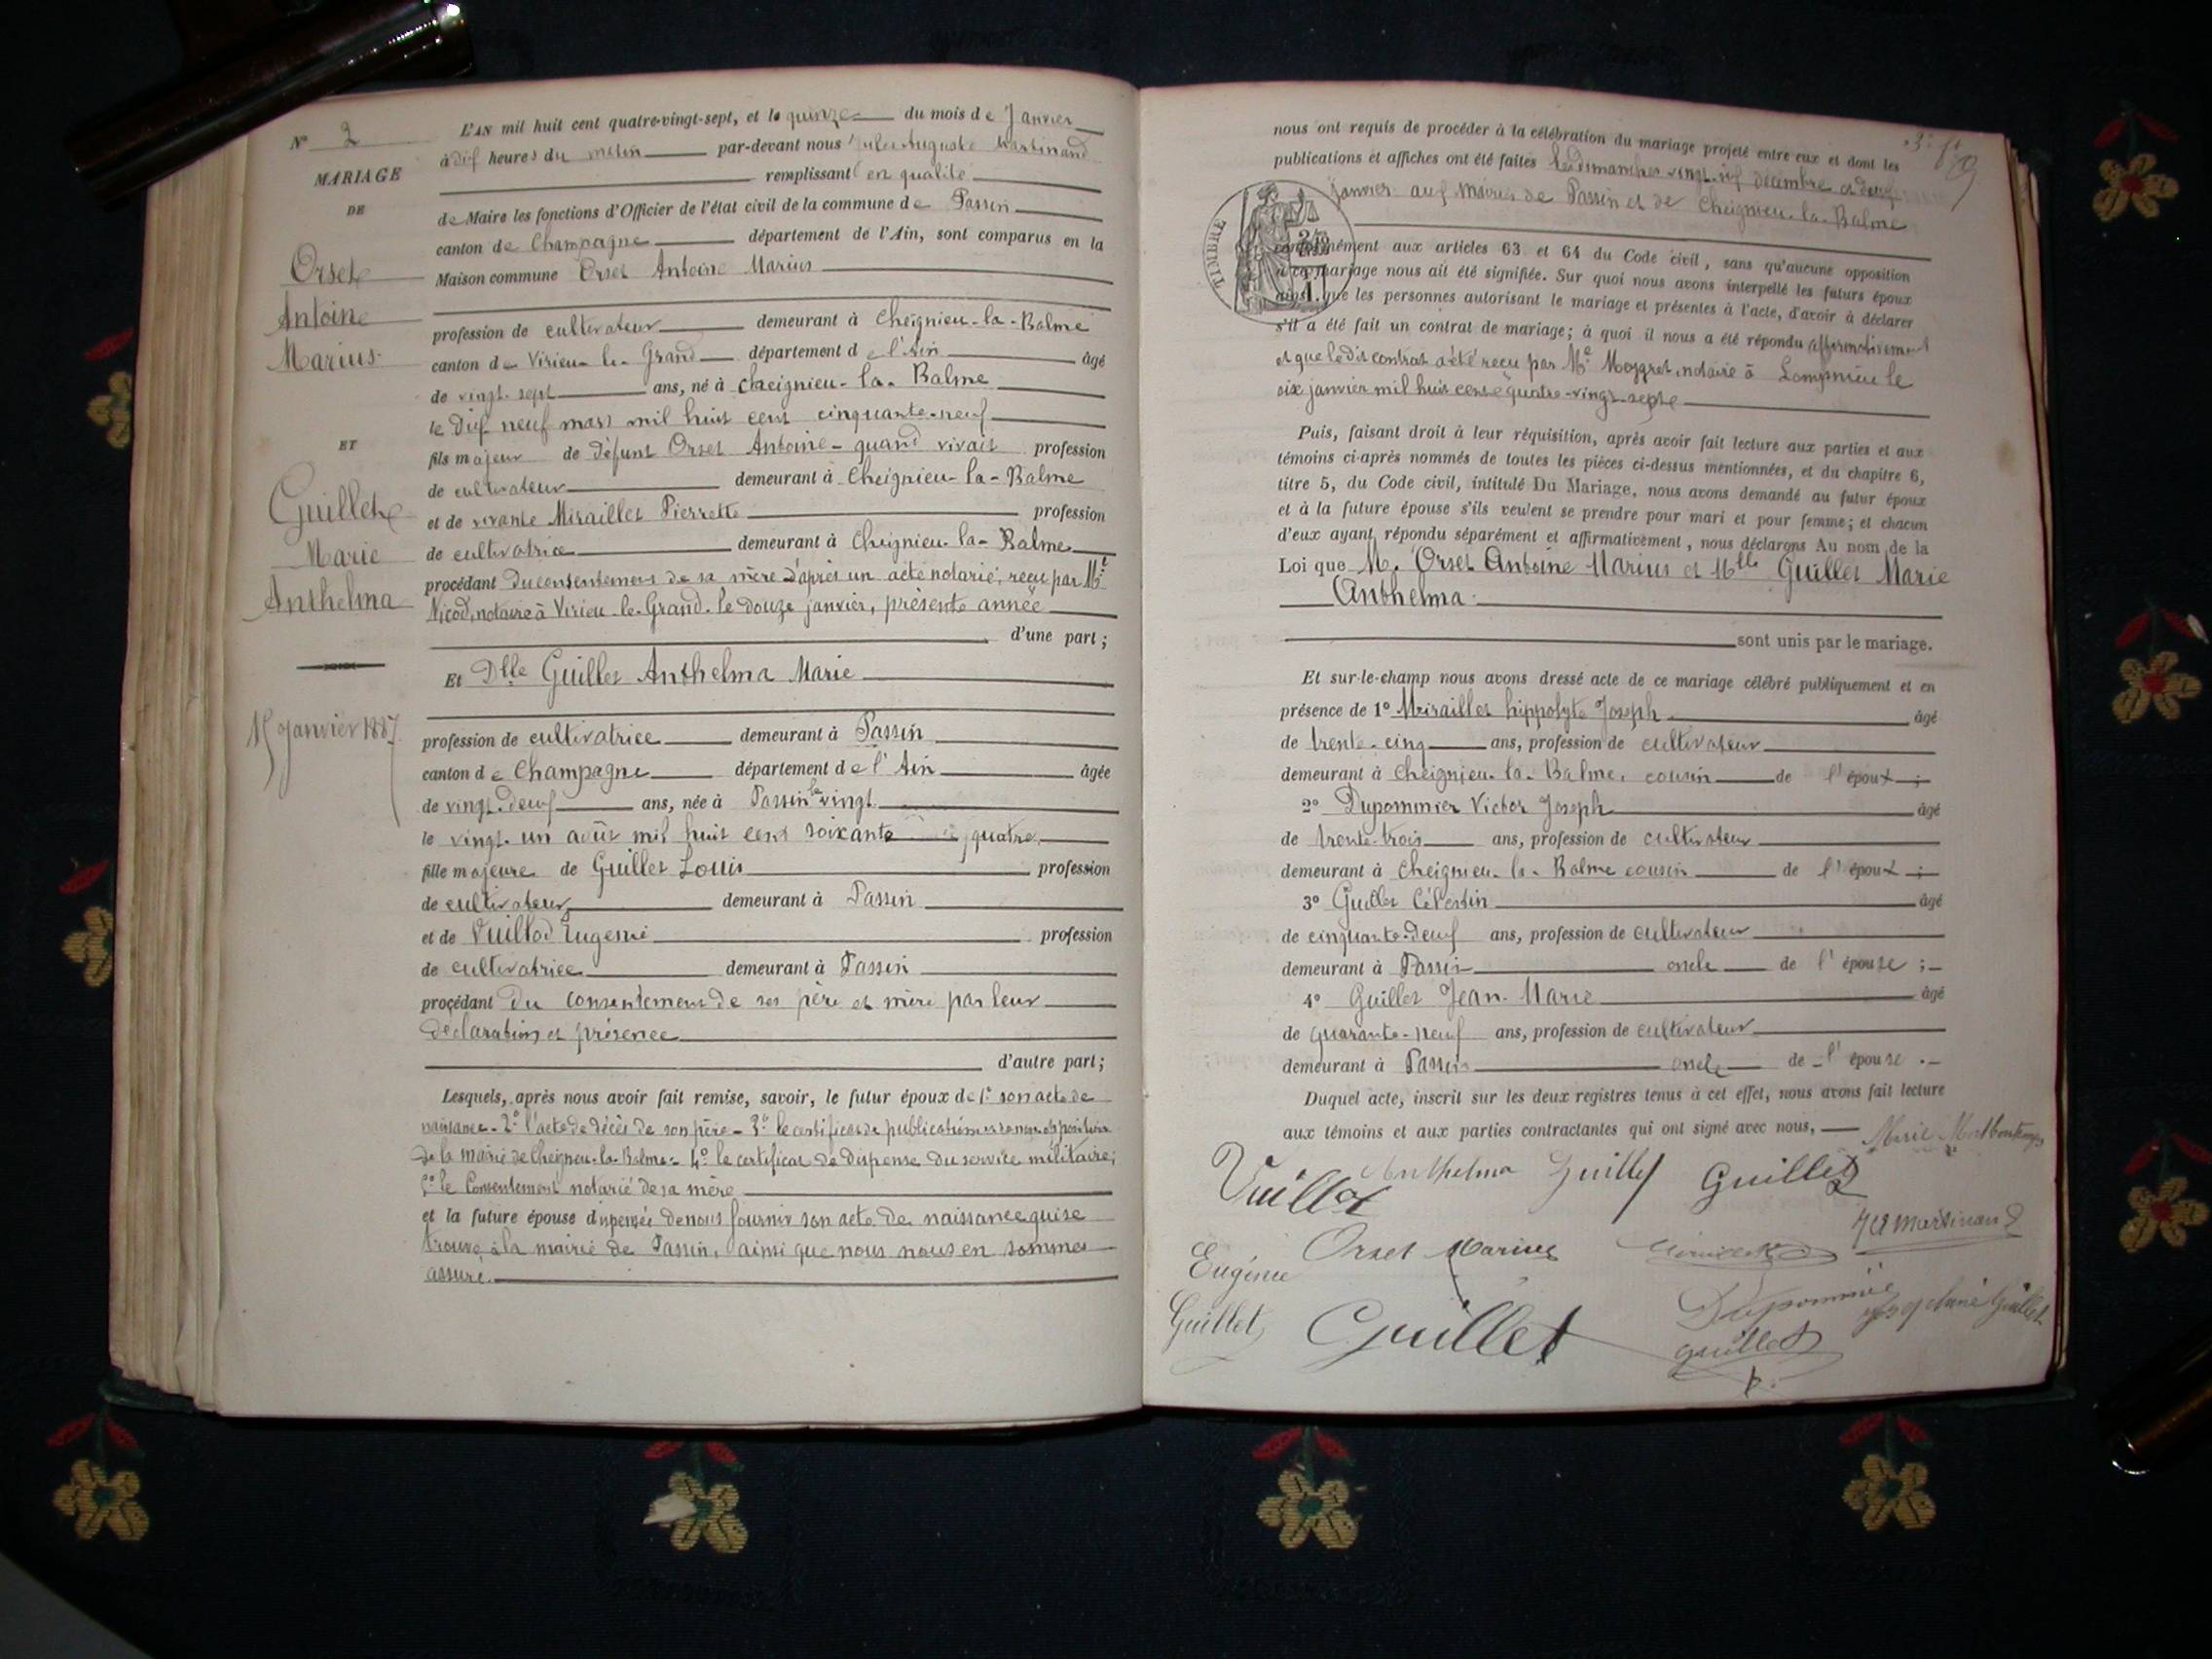 Nº 2
MARIAGE
DE
Orset
Antoine
Marius
ET
Guillet
Marie
Anthelma
15 Janvier 1887
L'AN mil huit cent quatre-vingt-sept, et le quinze du mois de Janvier
à dix heures du matin par-devant nous Jules Auguste Martinand
remplissant en qualité
de Maire les fonctions d'Officier de l'état civil de la commune de Passin
canton de Champagne département de l'Ain, sont comparus en la
Maison commune Orset Antoine Marius
profession de cultivateur demeurant à Cheignieu-la-Balme
canton de Virieu-le-Grand département de l'Ain âgé
de vingt-sept ans, né à Cheignieu-la-Balme
le dix neuf mars mil huit cent cinquante-neuf
fils majeur de défunt Orset Antoine - quand vivait profession
de cultivateur demeurant à Cheignieu-la-Balme
et de vivante Mirailler Pierrette profession
de cultivatrice demeurant à Cheignieu-la-Balme
procédant du consentement de sa mère d'après un acte notarié, reçu par Me
Nicod, notaire à Virieu-le-Grand, le douze janvier, présente année
d'une part ;
Et Dlle Guillet Anthelma Marie
profession de cultivatrice demeurant à Passin
canton de Champagne département de l'Ain âgée
de vingt-deux ans, née à Passin le vingt
le vingt-un août mil huit cent soixante quatre
fille majeure de Guillet Louis profession
de cultivateur demeurant à Passin
et de Vuillod Eugenie profession
de cultivatrice demeurant à Passin
procédant du consentement de ses père et mère par leur
déclaration et présence
d'autre part ;
Lesquels, après nous avoir fait remise, savoir, le futur époux de 1º son acte de
naissance - 2º l'acte de décès de son père - 3º le certificat de publication et de non opposition
de la mairie de Cheignieu-la-Balme - 4º le certificat de dispense du service militaire ;
5º le consentement notarié de sa mère
et la future épouse dispensée de nous fournir son acte de naissance qui se
trouve à la mairie de Passin, ainsi que nous nous en sommes
assuré.
nous ont requis de procéder à la célébration du mariage projeté entre eux et dont les
publications et affiches ont été faites les dimanches vingt-six décembre et deux
janvier aux mairies de Passin et de Cheignieu-la-Balme
TIMBRE
conformément aux articles 63 et 64 du Code civil, sans qu'aucune opposition
à ce mariage nous ait été signifiée. Sur quoi nous avons interpellé les futurs époux
ainsi que les personnes autorisant le mariage et présentes à l'acte, d'avoir à déclarer
s'il a été fait un contrat de mariage ; à quoi il nous a été répondu affirmativement
et que le dit contrat a été reçu par Me Moygret, notaire à Lompnieu le
six janvier mil huit cent quatre-vingt-sept
Puis, faisant droit à leur réquisition, après avoir fait lecture aux parties et aux
témoins ci-après nommés de toutes les pièces ci-dessus mentionnées, et du chapitre 6,
titre 5, du Code civil, intitulé Du Mariage, nous avons demandé au futur époux
et à la future épouse s'ils veulent se prendre pour mari et pour femme ; et chacun
d'eux ayant répondu séparément et affirmativement, nous déclarons Au nom de la
Loi que M. Orset Antoine Marius et Mlle Guillet Marie
Anthelma
sont unis par le mariage.
Et sur-le-champ nous avons dressé acte de ce mariage célébré publiquement et en
présence de 1º Mirailler hippolyte Joseph âgé
de trente-cinq ans, profession de cultivateur
demeurant à Cheignieu-la-Balme, cousin de l'époux ;
2º Dupommier Victor Joseph âgé
de trente-trois ans, profession de cultivateur
demeurant à Cheignieu-la-Balme cousin de l'époux ;
3º Guillet Célestin âgé
de cinquante-deux ans, profession de cultivateur
demeurant à Passin oncle de l'épouse ;
4º Guillet Jean-Marie âgé
de quarante-neuf ans, profession de cultivateur
demeurant à Passin oncle de l'épouse .
Duquel acte, inscrit sur les deux registres tenus à cet effet, nous avons fait lecture
aux témoins et aux parties contractantes qui ont signé avec nous,
Marie
Vuillod Anthelma Guillet Guillet
Orset Marius Martinand
Eugénie
Guillet Guillet Dupommier
Guillet
guillet